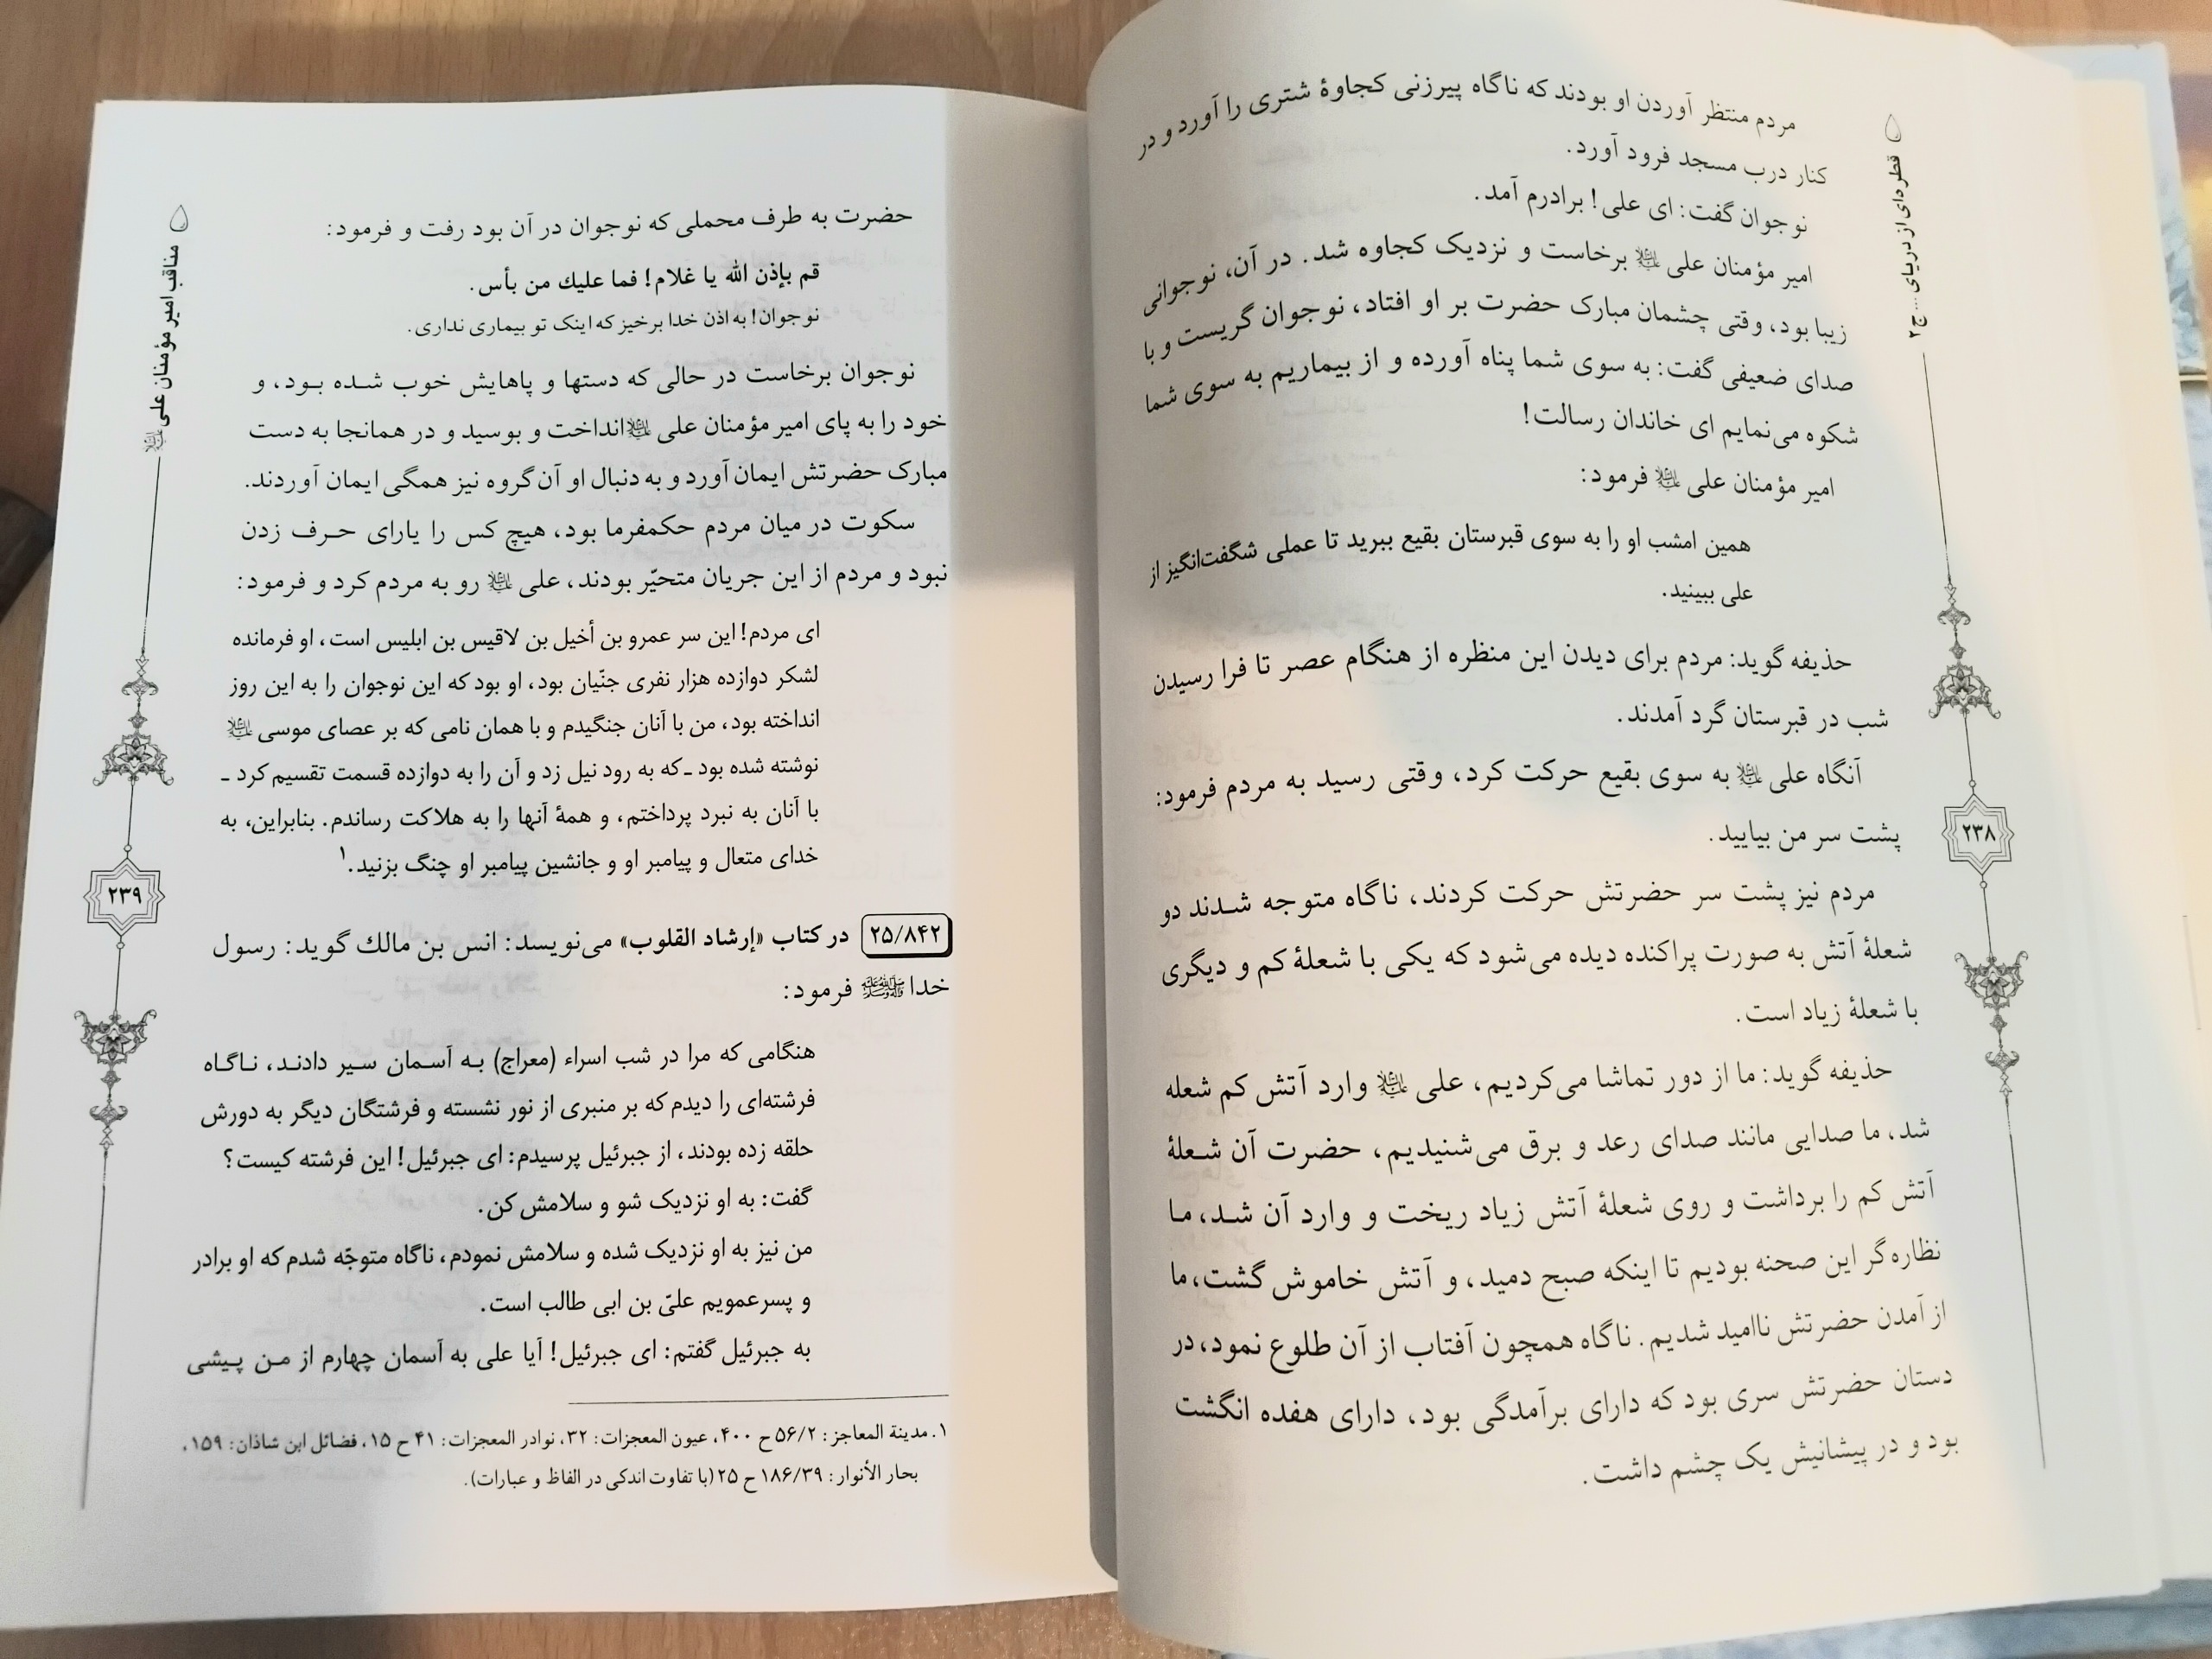 قطره‌ای از دریای ... ج ۲
مردم منتظر آوردن او بودند که ناگاه پیرزنی کجاوهٔ شتری را آورد و در
کنار درب مسجد فرود آورد.
نوجوان گفت: ای علی! برادرم آمد.
امیر مؤمنان علی علیه‌السلام برخاست و نزدیک کجاوه شد. در آن، نوجوانی
زیبا بود، وقتی چشمان مبارک حضرت بر او افتاد، نوجوان گریست و با
صدای ضعیفی گفت: به سوی شما پناه آورده و از بیماریم به سوی شما
شکوه می‌نمایم ای خاندان رسالت!
امیر مؤمنان علی علیه‌السلام فرمود:
همین امشب او را به سوی قبرستان بقیع ببرید تا عملی شگفت‌انگیز از
علی ببینید.
حذیفه گوید: مردم برای دیدن این منظره از هنگام عصر تا فرا رسیدن
شب در قبرستان گرد آمدند.
آنگاه علی علیه‌السلام به سوی بقیع حرکت کرد، وقتی رسید به مردم فرمود:
پشت سر من بیایید.
مردم نیز پشت سر حضرتش حرکت کردند، ناگاه متوجه شدند دو
شعلهٔ آتش به صورت پراکنده دیده می‌شود که یکی با شعلهٔ کم و دیگری
با شعلهٔ زیاد است.
حذیفه گوید: ما از دور تماشا می‌کردیم، علی علیه‌السلام وارد آتش کم شعله
شد، ما صدایی مانند صدای رعد و برق می‌شنیدیم، حضرت آن شعلهٔ
آتش کم را برداشت و روی شعلهٔ آتش زیاد ریخت و وارد آن شد، ما
نظاره‌گر این صحنه بودیم تا اینکه صبح دمید، و آتش خاموش گشت، ما
از آمدن حضرتش ناامید شدیم. ناگاه همچون آفتاب از آن طلوع نمود، در
دستان حضرتش سری بود که دارای برآمدگی بود، دارای هفده انگشت
بود و در پیشانیش یک چشم داشت.
۲۳۸
مناقب امیر مؤمنان علی علیه‌السلام
حضرت به طرف محملی که نوجوان در آن بود رفت و فرمود:
قم بإذن الله یا غلام! فما علیك من بأس.
نوجوان! به اذن خدا برخیز که اینک تو بیماری نداری.
نوجوان برخاست در حالی که دستها و پاهایش خوب شده بود، و
خود را به پای امیر مؤمنان علی علیه‌السلام انداخت و بوسید و در همانجا به دست
مبارک حضرتش ایمان آورد و به دنبال او آن گروه نیز همگی ایمان آوردند.
سکوت در میان مردم حکمفرما بود، هیچ کس را یارای حرف زدن
نبود و مردم از این جریان متحیّر بودند، علی علیه‌السلام رو به مردم کرد و فرمود:
ای مردم! این سر عمرو بن أخیل بن لاقیس بن ابلیس است، او فرمانده
لشکر دوازده هزار نفری جنّیان بود، او بود که این نوجوان را به این روز
انداخته بود، من با آنان جنگیدم و با همان نامی که بر عصای موسی علیه‌السلام
نوشته شده بود ـ که به رود نیل زد و آن را به دوازده قسمت تقسیم کرد ـ
با آنان به نبرد پرداختم، و همهٔ آنها را به هلاکت رساندم. بنابراین، به
خدای متعال و پیامبر او و جانشین پیامبر او چنگ بزنید.۱
۲۵/۸۴۲ در کتاب «إرشاد القلوب» می‌نویسد: انس بن مالك گوید: رسول
خدا صلی‌الله‌علیه‌وآله‌وسلم فرمود:
هنگامی که مرا در شب اسراء (معراج) به آسمان سیر دادند، ناگاه
فرشته‌ای را دیدم که بر منبری از نور نشسته و فرشتگان دیگر به دورش
حلقه زده بودند، از جبرئیل پرسیدم: ای جبرئیل! این فرشته کیست؟
گفت: به او نزدیک شو و سلامش کن.
من نیز به او نزدیک شده و سلامش نمودم، ناگاه متوجّه شدم که او برادر
و پسرعمویم علیّ بن ابی طالب است.
به جبرئیل گفتم: ای جبرئیل! آیا علی به آسمان چهارم از من پیشی
۱. مدینة المعاجز: ۵۶/۲ ح ۴۰۰، عیون المعجزات: ۳۲، نوادر المعجزات: ۴۱ ح ۱۵، فضائل ابن شاذان: ۱۵۹،
بحار الأنوار: ۱۸۶/۳۹ ح ۲۵ (با تفاوت اندکی در الفاظ و عبارات).
۲۳۹